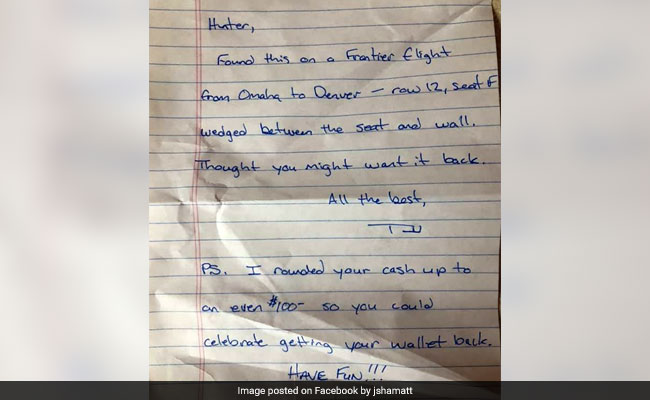 Hunter,
Found this on a Frontier flight
from Omaha to Denver — row 12, seat F
wedged between the seat and wall.
Thought you might want it back.
All the best,
PS. I rounded your cash up to
an even $100- so you could
celebrate getting your wallet back.
HAVE FUN!!!
Image posted on Facebook by jshamatt